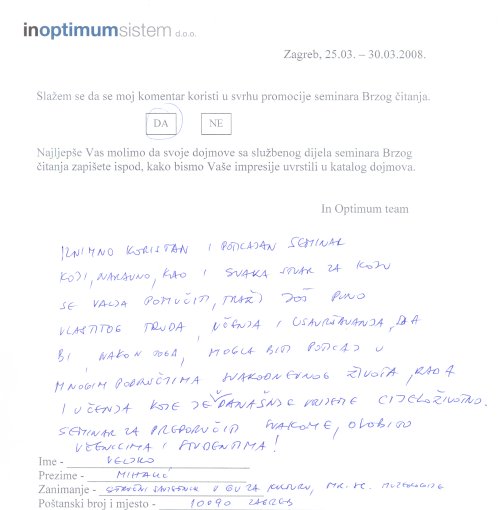 inoptimumsistem d.o.o.
Zagreb, 25.03. – 30.03.2008.
Slažem se da se moj komentar koristi u svrhu promocije seminara Brzog čitanja.
DA NE
Najljepše Vas molimo da svoje dojmove sa službenog dijela seminara Brzog
čitanja zapišete ispod, kako bismo Vaše impresije uvrstili u katalog dojmova.
In Optimum team
IZNIMNO KORISTAN I POTICAJAN SEMINAR
KOJI, NARAVNO, KAO I SVAKA STVAR ZA KOJU
SE VALJA POMUČITI, TRAŽI JOŠ PUNO
VLASTITOG TRUDA, UČENJA I USAVRŠAVANJA, DA
BI, NAKON TOGA, MOGLA BITI POTICAJ U
MNOGIM PODRUČJIMA SVAKODNEVNOG ŽIVOTA, RADA
I UČENJA KOJE JE U DANAŠNJE VRIJEME CJELOŽIVOTNO.
SEMINAR ZA PREPORUČITI SVAKOME, OSOBITO
UČENICIMA I STUDENTIMA!
Ime - VELJKO
Prezime - MIHALIĆ
Zanimanje - STRUČNI SAVJETNIK U GU ZA KULTURU, MR. SC. MUZEOLOGIJE
Poštanski broj i mjesto - 10090 ZAGREB